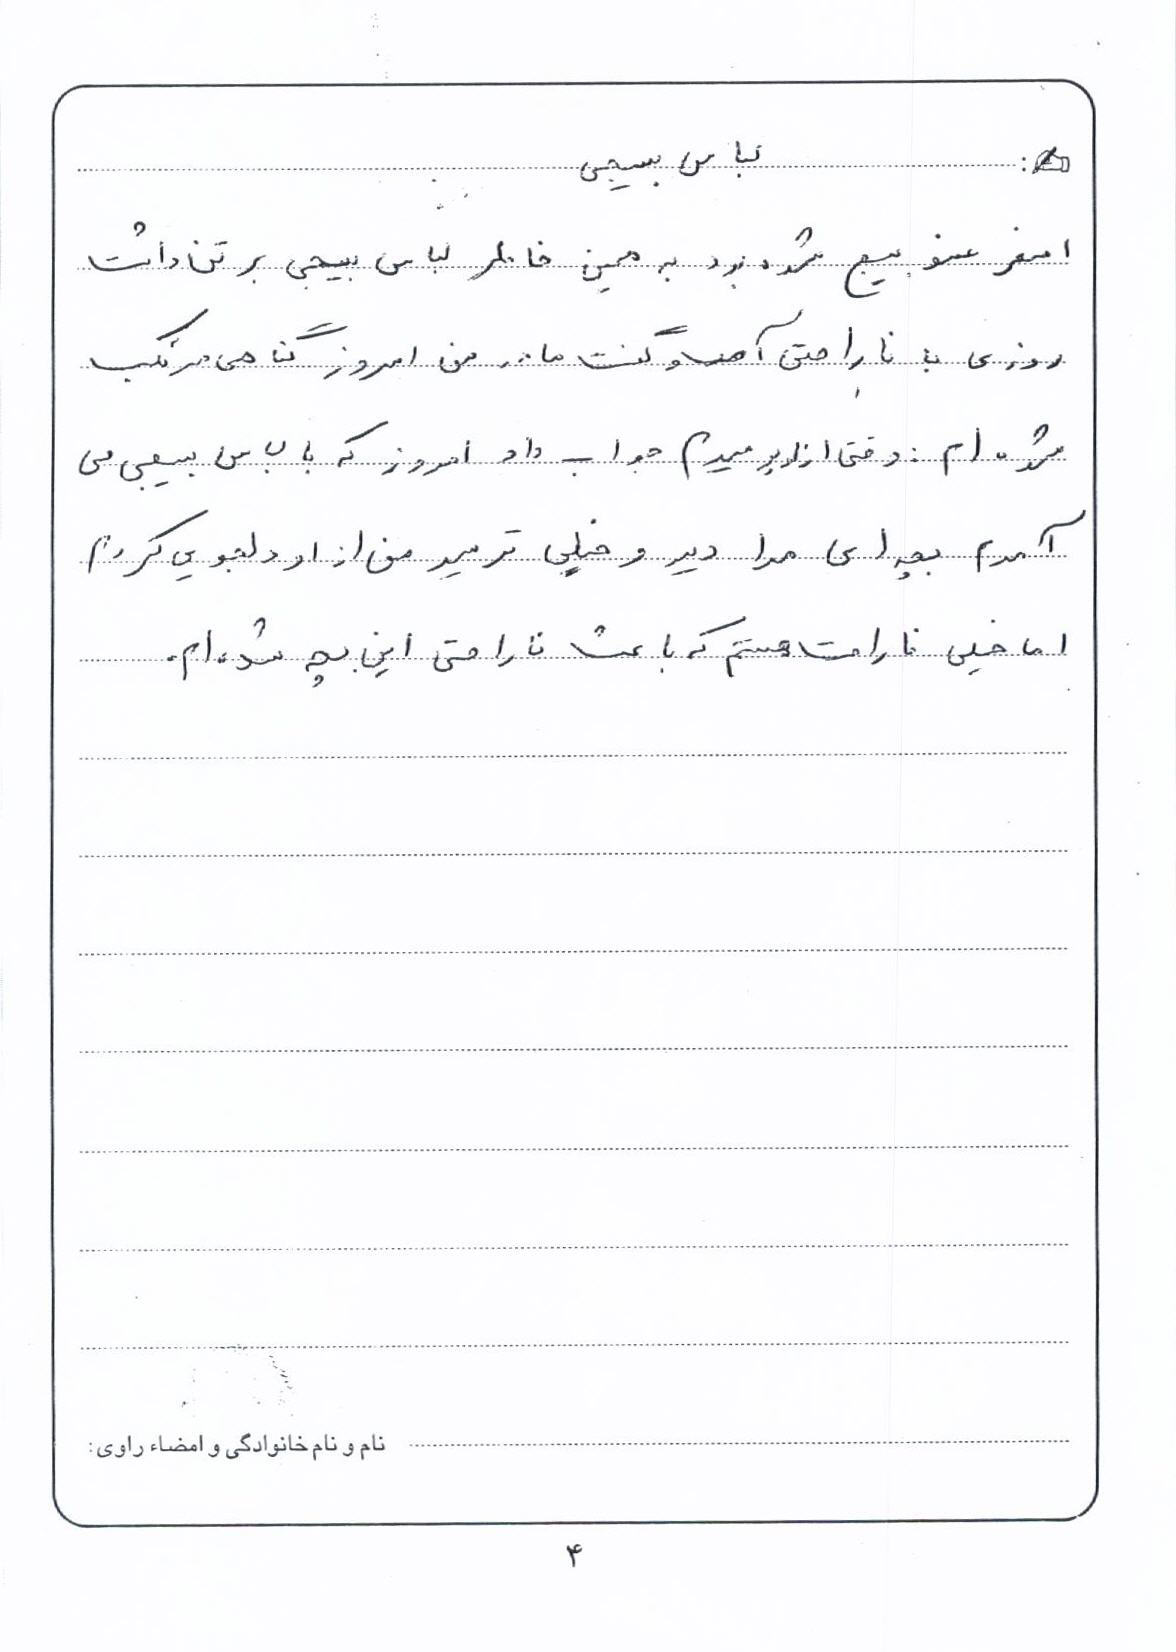 لباس بسیجی
اصغر عضو بسیج شده بود به همین خاطر لباس بسیجی بر تن داشت
روزی با ناراحتی آمد و گفت مادر من امروز گناهی مرتکب
شده ام : وقتی از او پرسیدم جواب داد امروز که با لباس بسیجی می
آمدم بچه ای مرا دید و خیلی ترسید من از او دلجویی کردم
اما خیلی ناراحت هستم که باعث ناراحتی این بچه شده ام.
نام و نام خانوادگی و امضاء راوی:
۴